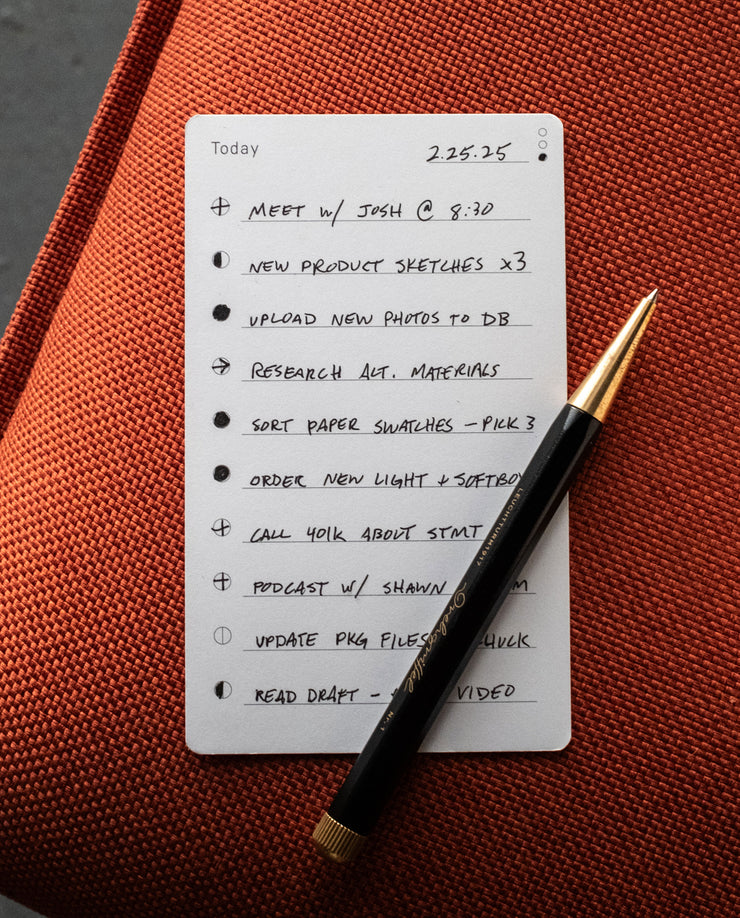 Today 2.25.25
MEET W/ JOSH @ 8:30
NEW PRODUCT SKETCHES x3
UPLOAD NEW PHOTOS TO DB
RESEARCH ALT. MATERIALS
SORT PAPER SWATCHES - PICK 3
ORDER NEW LIGHT +
CALL 401K ABOUT STMT
PODCAST W/ SHAWN
UPDATE PKG FILES
READ DRAFT - VIDEO
LEUCHTTURM1917
Drehgriffel
Nr. 1